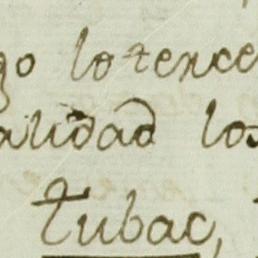 go lo terce
alidad los
Tubac,